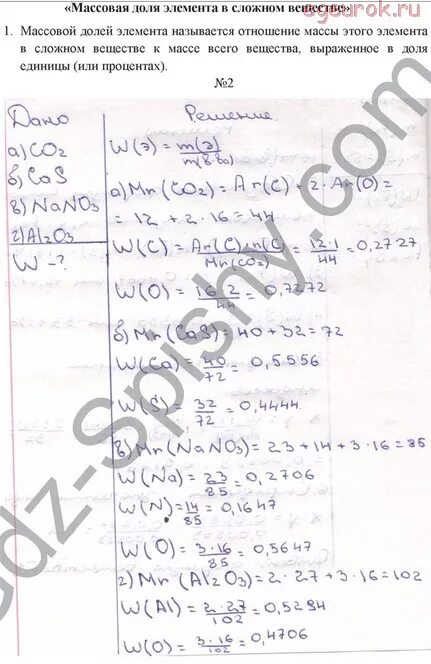 «Массовая доля элемента в сложном веществе»
egeurok.ru
1. Массовой долей элемента называется отношение массы этого элемента
в сложном веществе к массе всего вещества, выраженное в доля
единицы (или процентах).
№2
Дано
а) CO₂
б) CaS
в) NaNO₃
г) Al₂O₃
W - ?
Решение
W(э) = m(э)/m(в-ва)
а) Mr(CO₂) = Ar(C) + 2·Ar(O) =
= 12 + 2·16 = 44
W(C) = Ar(C)·n(C)/Mr(CO₂) = 12·1/44 = 0,2727
W(O) = 16·2/44 = 0,7272
б) Mr(CaS) = 40 + 32 = 72
W(Ca) = 40/72 = 0,5556
W(S) = 32/72 = 0,4444
в) Mr(NaNO₃) = 23 + 14 + 3·16 = 85
W(Na) = 23/85 = 0,2706
W(N) = 14/85 = 0,1647
W(O) = 3·16/85 = 0,5647
г) Mr(Al₂O₃) = 2·27 + 3·16 = 102
W(Al) = 2·27/102 = 0,5294
W(O) = 3·16/102 = 0,4706
gdz-spishy.com